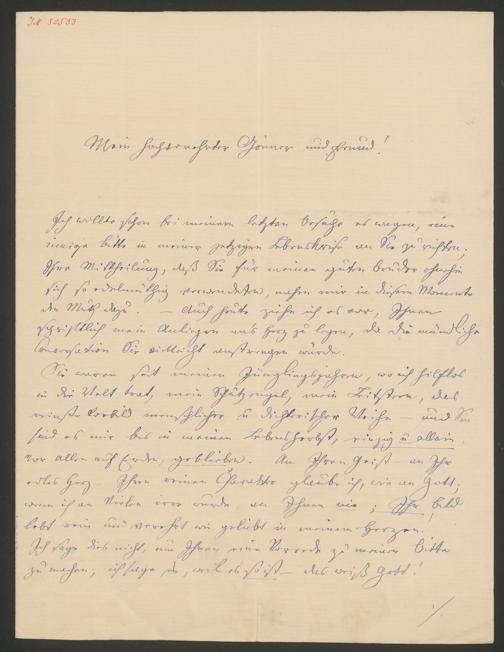 IN 32533
Mein hochverehrter Gönner und Freund!
Ich wollte schon bei meinem letzten Besuche es wagen, eine
innige Bitte in meiner jetzigen Lebenskrise an Sie zu richten;
Ihre Mittheilung, daß Sie für meinen guten Bruder ohnehin
sich so edelmüthig verwendeten, nahm mir in diesem Momente
den Muth dazu. — Auch heute ziehe ich es vor, Ihnen
schriftlich mein Anliegen an's Herz zu legen, da die mündliche
Conversation Sie vielleicht anstrengen würde.
Sie waren seit meinen Jünglingsjahren, wo ich hilflos
in die Welt trat, mein Schutzengel, mein Leitstern, das
reinste Vorbild menschlicher u dichterischer Weihe — und Sie
sind es mir bis in meinen Lebensherbst, einzig u allein
vor allen auf Erden, geblieben. An Ihren Geist an Ihr
edles Herz – Ihren reinen Charakter glaube ich, wie an Gott;
wenn ich an Vielen irre wurde, an Ihnen nie; Ihr Bild
lebt rein und verehrt wie geliebt in meinem Herzen.
Ich sage dies nicht, um Ihnen eine Vorrede zu meiner Bitte
zu machen; ich sage es, weil es so ist – das weiß Gott!
./.